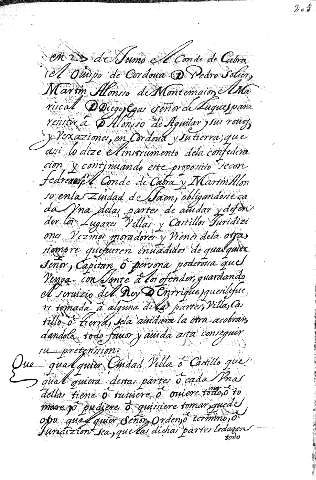 205
en 22 de Junio el Conde de Cabra,
el Ouispo de Cordova D. Pedro Solier,
Martin Alonso de Montemaior, el Ma
riscal D. Diego, Egas señor de Luque, para
resistir a D. Alonso de Aguilar, sus robos
y vexaziones, en Cordova y su tierra; que
asi lo dize el instrumento dela confedera
cion, y continuando este proposito se con
federan el Conde de Cabra y Martin Alon
so en la Ziudad de Jaen, obligandose ca
da Vna delas partes de aiudar y defen
der los Lugares, Villas y Castillos Juridizi
ones Vezinos, moradores y Vienes dela otra
siempre que fueren inuadidos de qualquier
Señor, Capitan, o persona poderosa que
Venga con Jente a los ofender, guardando
el servizio del Rey D. Enrrique; que si fue
re tomada a alguna delas partes, Villa, Cas
tillo o tierra, sela aiudara la otra a cobrar,
dandola todo favor y aiuda asta conseguir
su pretension:
Que qualquier Ciudad Villa o Castillo que
qual quiera destas partes o cada Vna
dellas tiene o tuviere, o oviere todo, o to
mare o pudiere o quisiere tomar, que des
o qual quier Señor, Orden, o termino, o
Juridizion sea, que las dichas partes
todo